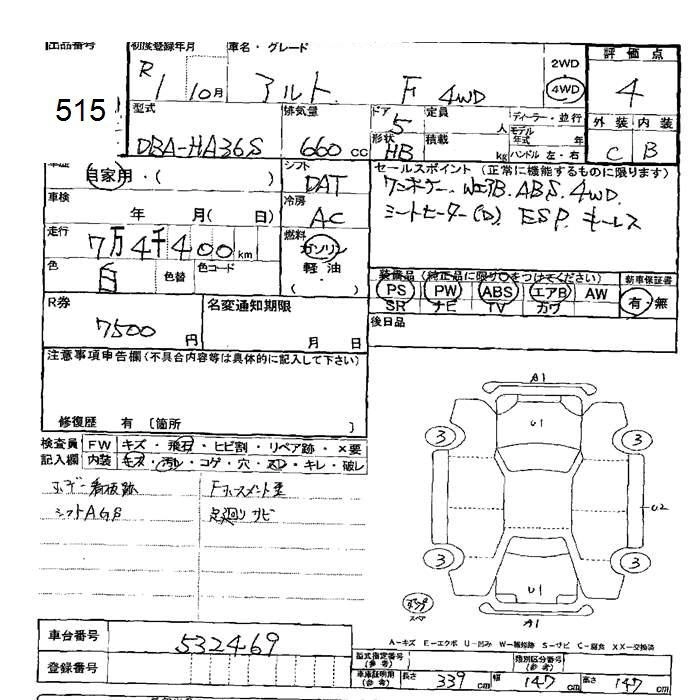 出品番号 初度登録年月 車名・グレード 2WD 評価点
515 R1 10月 アルト F 4WD 4WD 4
型式 排気量 ドア 定員 ディーラー・並行 外装 内装
DBA-HA36S 660 cc 5 人 モデル年式 年 C B
形状 積載 HB kg ハンドル 左・右
車歴 自家用・( ) シフト DAT セールスポイント (正常に機能するものに限ります)
車検 年 月( 日) 冷房 AC ワンオーナー、WエアB、ABS、4WD、
走行 7万4千400km 燃料 ガソリン シートヒーター(D)、ESP、キーレス
色 白 色替 色コード 軽・油 ( )
装備品 (純正品に限り○をつけてください) 新車保証書
PS PW ABS エアB AW 有・無
SR ナビ TV カワ
R券 7500円 名変通知期限 月 日 後日品
注意事項申告欄(不具合内容等は具体的に記入して下さい)
修復歴 有 [箇所 ]
検査員 FW キズ・飛石・ヒビ割・リペア跡・×要
記入欄 内装 キズ・汚レ・コゲ・穴・スレ・キレ・破レ
ボデー看板跡
シフトAGS 足廻りサビ
A1
U1
3 3
U2
3 3
U1
A1
スペア
A-キズ E-エクボ U-凹み W-補修跡 S-サビ C-腐食 XX-交換済
車台番号 532469
登録番号
型式指定番号 (参考) 類別区分番号 (参考)
車庫証明用 (参考) 長さ 339cm 幅 147cm 高さ 147cm